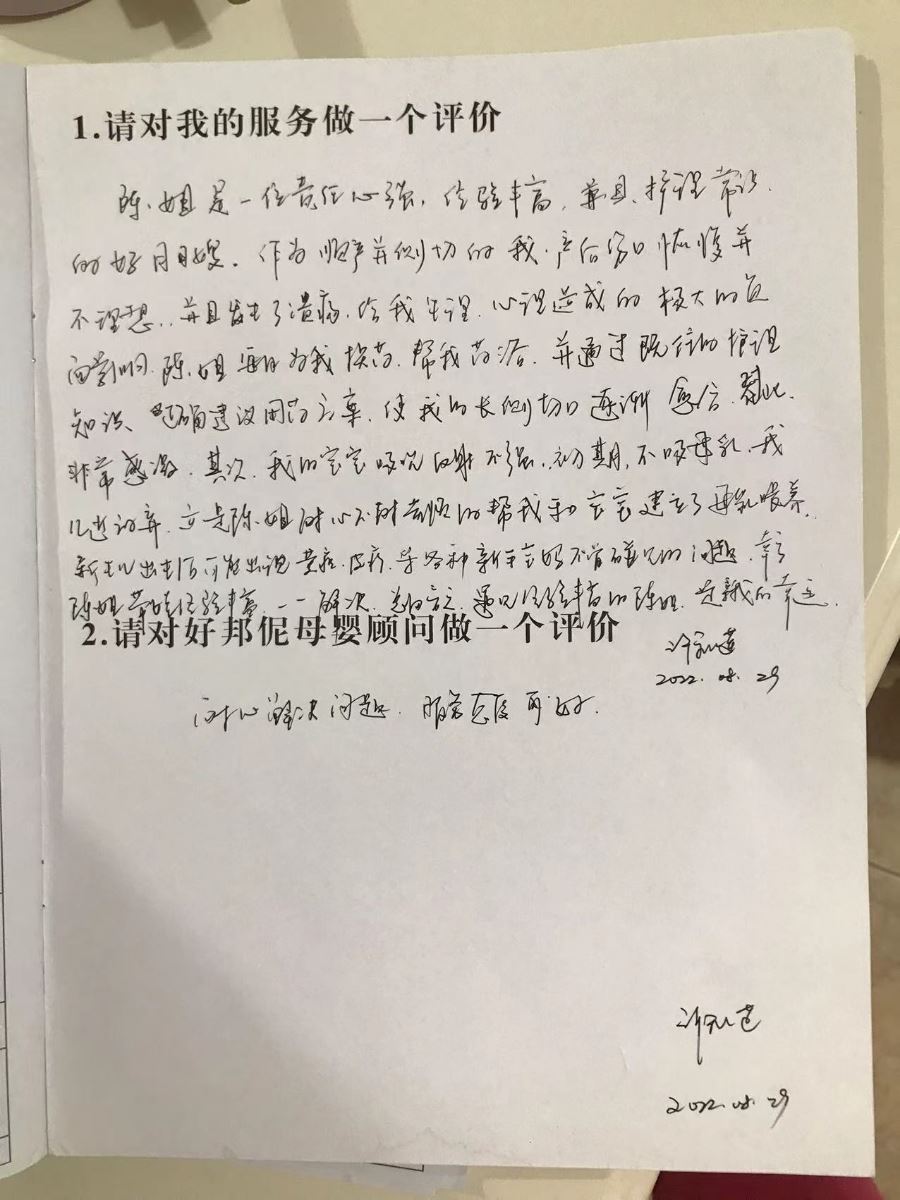 1.请对我的服务做一个评价
陈姐是一位责任心强,经验丰富,兼具护理常识
的好月嫂。作为顺产并侧切的我,产后伤口恢复并
不理想,并且发生了溃疡,给我生理、心理造成的极大的负
面影响,陈姐每日为我换药,帮我药浴,并通过既往的护理
知识,正确建议用药方案,使我的长侧切口逐渐愈合,对此
非常感激。其次,我的宝宝吸吮反射不强,初期,不吸母乳,我
几近放弃,立是陈姐耐心不辞劳烦的帮我和宝宝建立了母乳喂养,
新生儿出生后可能出现黄疸、皮疹等各种新手宝妈不曾碰见的问题,靠
陈姐带娃经验丰富,一一解决,总而言之,遇见经验丰富的陈姐,是我的幸运
2.请对好邦伲母婴顾问做一个评价
2022.08.29
耐心解决问题,服务态度可好.
2022.08.29